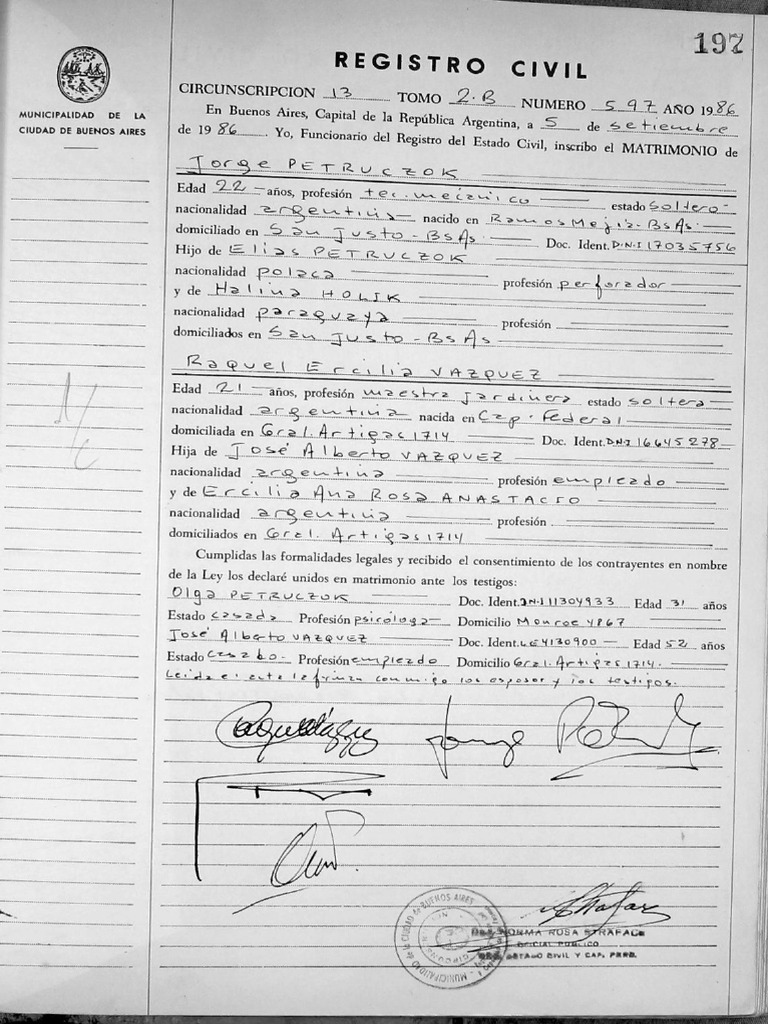 197
REGISTRO CIVIL
MUNICIPALIDAD DE LA
CIUDAD DE BUENOS AIRES
CIRCUNSCRIPCION 13 TOMO 2.B NUMERO 597 AÑO 1986
En Buenos Aires, Capital de la República Argentina, a 5 de setiembre
de 1986. Yo, Funcionario del Registro del Estado Civil, inscribo el MATRIMONIO de
Jorge PETRUCZOK
Edad 22 años, profesión tec. mecánico estado soltero
nacionalidad argentina nacido en Ramos Mejía-BsAs.
domiciliado en San Justo-BsAs. Doc. Ident. D.N.I 17035756
Hijo de Elías PETRUCZOK
nacionalidad polaca profesión perforador
y de Halina HOLIK
nacionalidad paraguaya profesión
domiciliados en San Justo-BsAs
Raquel Ercilia VAZQUEZ
Edad 21 años, profesión maestra jardinera estado soltera
nacionalidad argentina nacida en Cap. Federal
domiciliada en Gral. Artigas 1714 Doc. Ident. D.N.I 16.645.278
Hija de José Alberto VAZQUEZ
nacionalidad argentina profesión empleado
y de Ercilia Ana Rosa ANASTACIO
nacionalidad argentina profesión
domiciliados en Gral. Artigas 1714
Cumplidas las formalidades legales y recibido el consentimiento de los contrayentes en nombre
de la Ley los declaré unidos en matrimonio ante los testigos:
Olga PETRUCZOK Doc. Ident. D.N.I 11304933 Edad 31 años
Estado casada Profesión psicóloga Domicilio Monroe 4867
José Alberto VAZQUEZ Doc. Ident. LE 4130900 Edad 52 años
Estado casado Profesión empleado Domicilio Gral. Artigas 1714.
Leida el acta la firman conmigo los esposos y los testigos.
NORMA ROSA STRAFACE
OFICIAL PUBLICO
ESTADO CIVIL Y CAP. PERS.
MUNICIPALIDAD de la CIUDAD de BUENOS AIRES